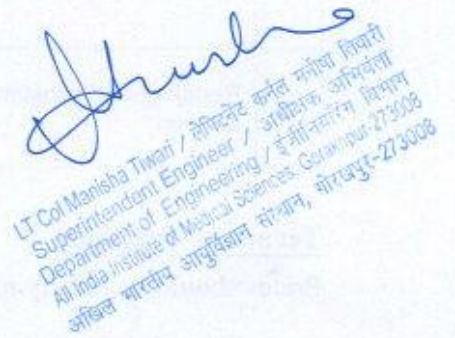 LT Col Manisha Tiwari / लेफ्टिनेंट कर्नल मनीषा तिवारी
Superintendent Engineer / अधीक्षक अभियंता
Department of Engineering / इंजीनियरिंग विभाग
All India Institute of Medical Sciences, Gorakhpur-273008
अखिल भारतीय आयुर्विज्ञान संस्थान, गोरखपुर-273008